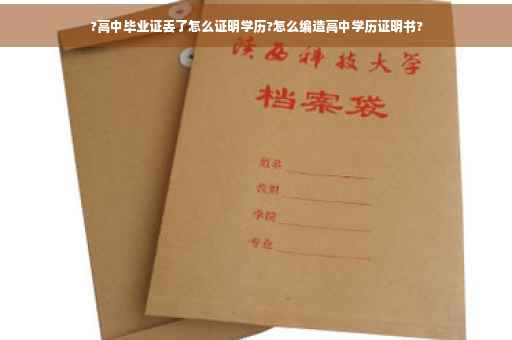 ?高中毕业证丢了怎么证明学历?怎么编造高中学历证明书?
陕西科技大学
档案袋
姓名
学院
专业